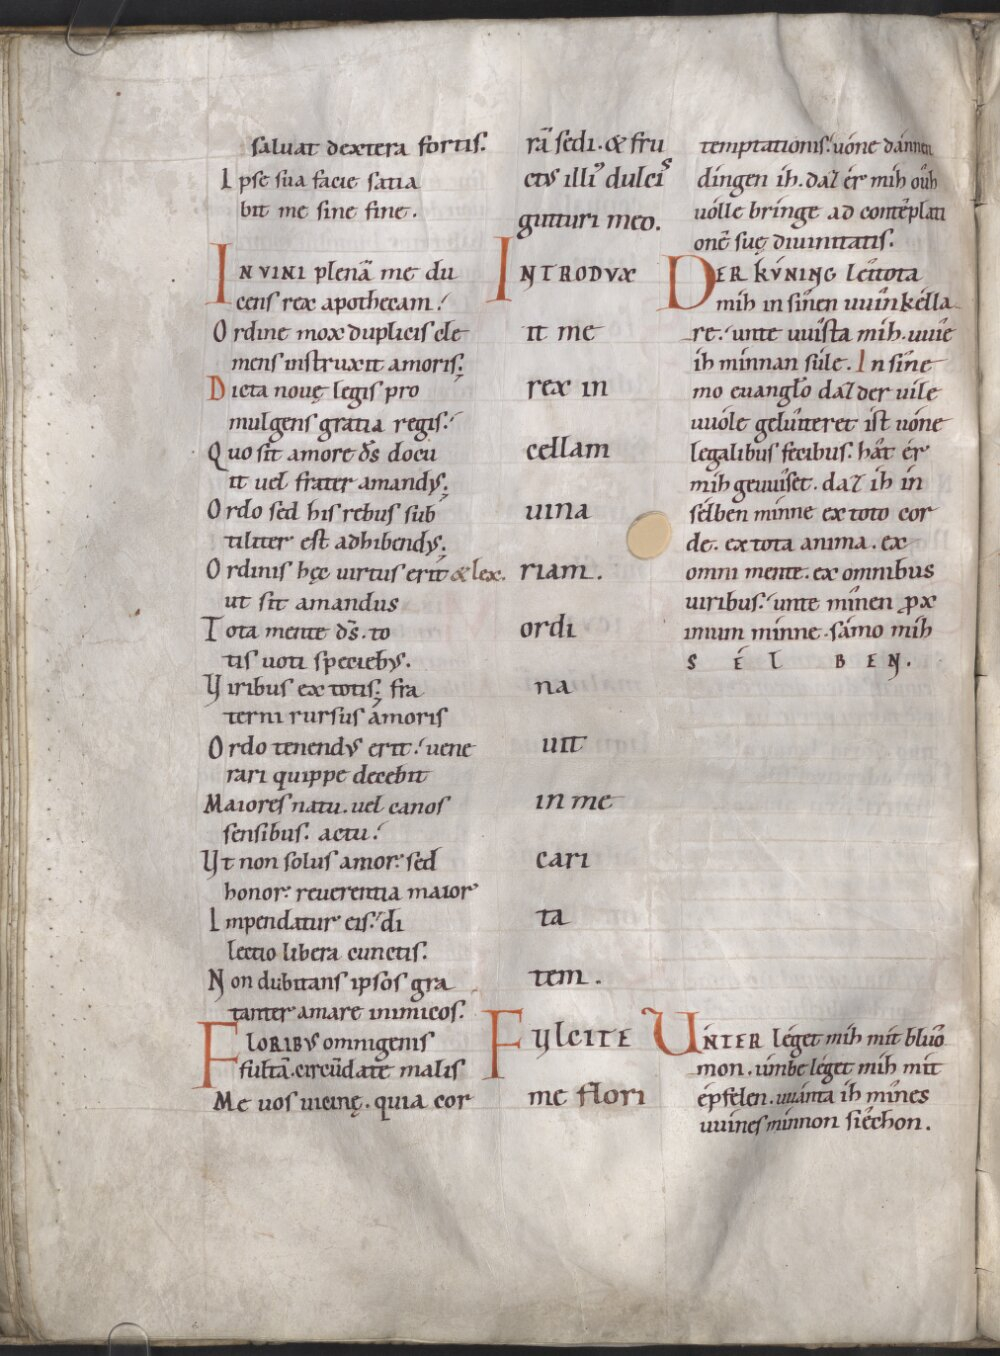 saluat dextera fortis.
Ipse sua facie satia
bit me sine fine.
IN VINI plenā me du
cens rex apothecam.
Ordine mox duplicis ele
mens instruxit amoris;
Dicta nouę legis pro
mulgens gratia regis.
Quo sit amore d̄s docu
it uel frater amandus;
Ordo sed his rebus sub
tiliter est adhibendus;
Ordinis hęc virtus erit & lex.
ut sit amandus
Tota mente d̄s. to
tis uoti speciebus.
Viribus ex totis; fra
terni rursus amoris
Ordo tenendus erit. uene
rari quippe decebit
Maiores natu. uel canos
sensibus. actu.
Vt non solus amor. sed
honor. reuerentia maior
Impendatur eis. di
lectio libera cunctis.
Non dubitans ipsos gra
tanter amare inimicos.
FLORIBVS omnigenis
fultā. circūdate malis
Me uos uicinę. quia cor
rā sedi. & fru
ctus illi' dulcis
gutturi meo.
INTRODVX
it me
rex in
cellam
uina
riam.
ordi
na
uit
in me
cari
ta
tem.
FVLCITE
me flori
temptationis. uóne dánnen
dingen ih. daz ér mih oûh
uólle bringe ad contēplati
onē suę diuinitatis.
DER KVNING leîtota
mih in sînen uuînkélla
re. unte uuîsta mih. uuîe
ih minnan súle. In sîne
mo euanglo daz der uile
uuóle gelûtteret ist uóne
legalibus fecibus. hât ér
mih geuuîset. daz ih in
sélben minne ex toto cor
de. ex tota anima. ex
omni mente. ex omnibus
uiribus. unte mînen ꝓx
imum minne. sámo mih
SÉLBEN.
ÚNTER léget mih mit bluô
mon. úmbe léget mih mit
épfelen. uuánta ih mînes
uuínes minnon siêchon.